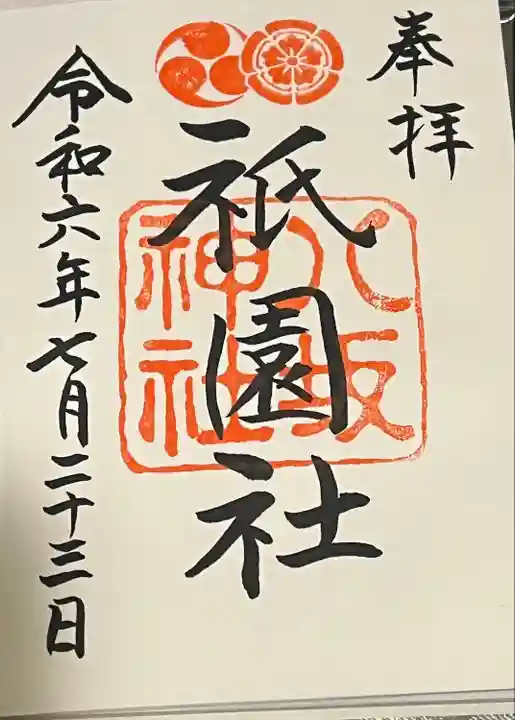 奉拝
祇園社
八坂
神社
令和六年七月二十三日